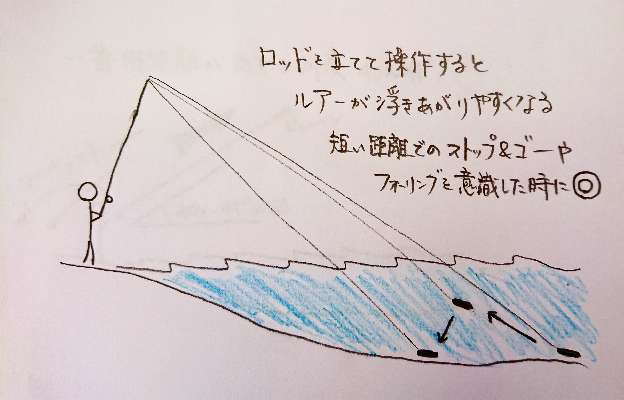 ロッドを立てて操作すると
ルアーが浮きあがりやすくなる
短い距離でのストップ&ゴーや
フォーリングを意識した時に◎